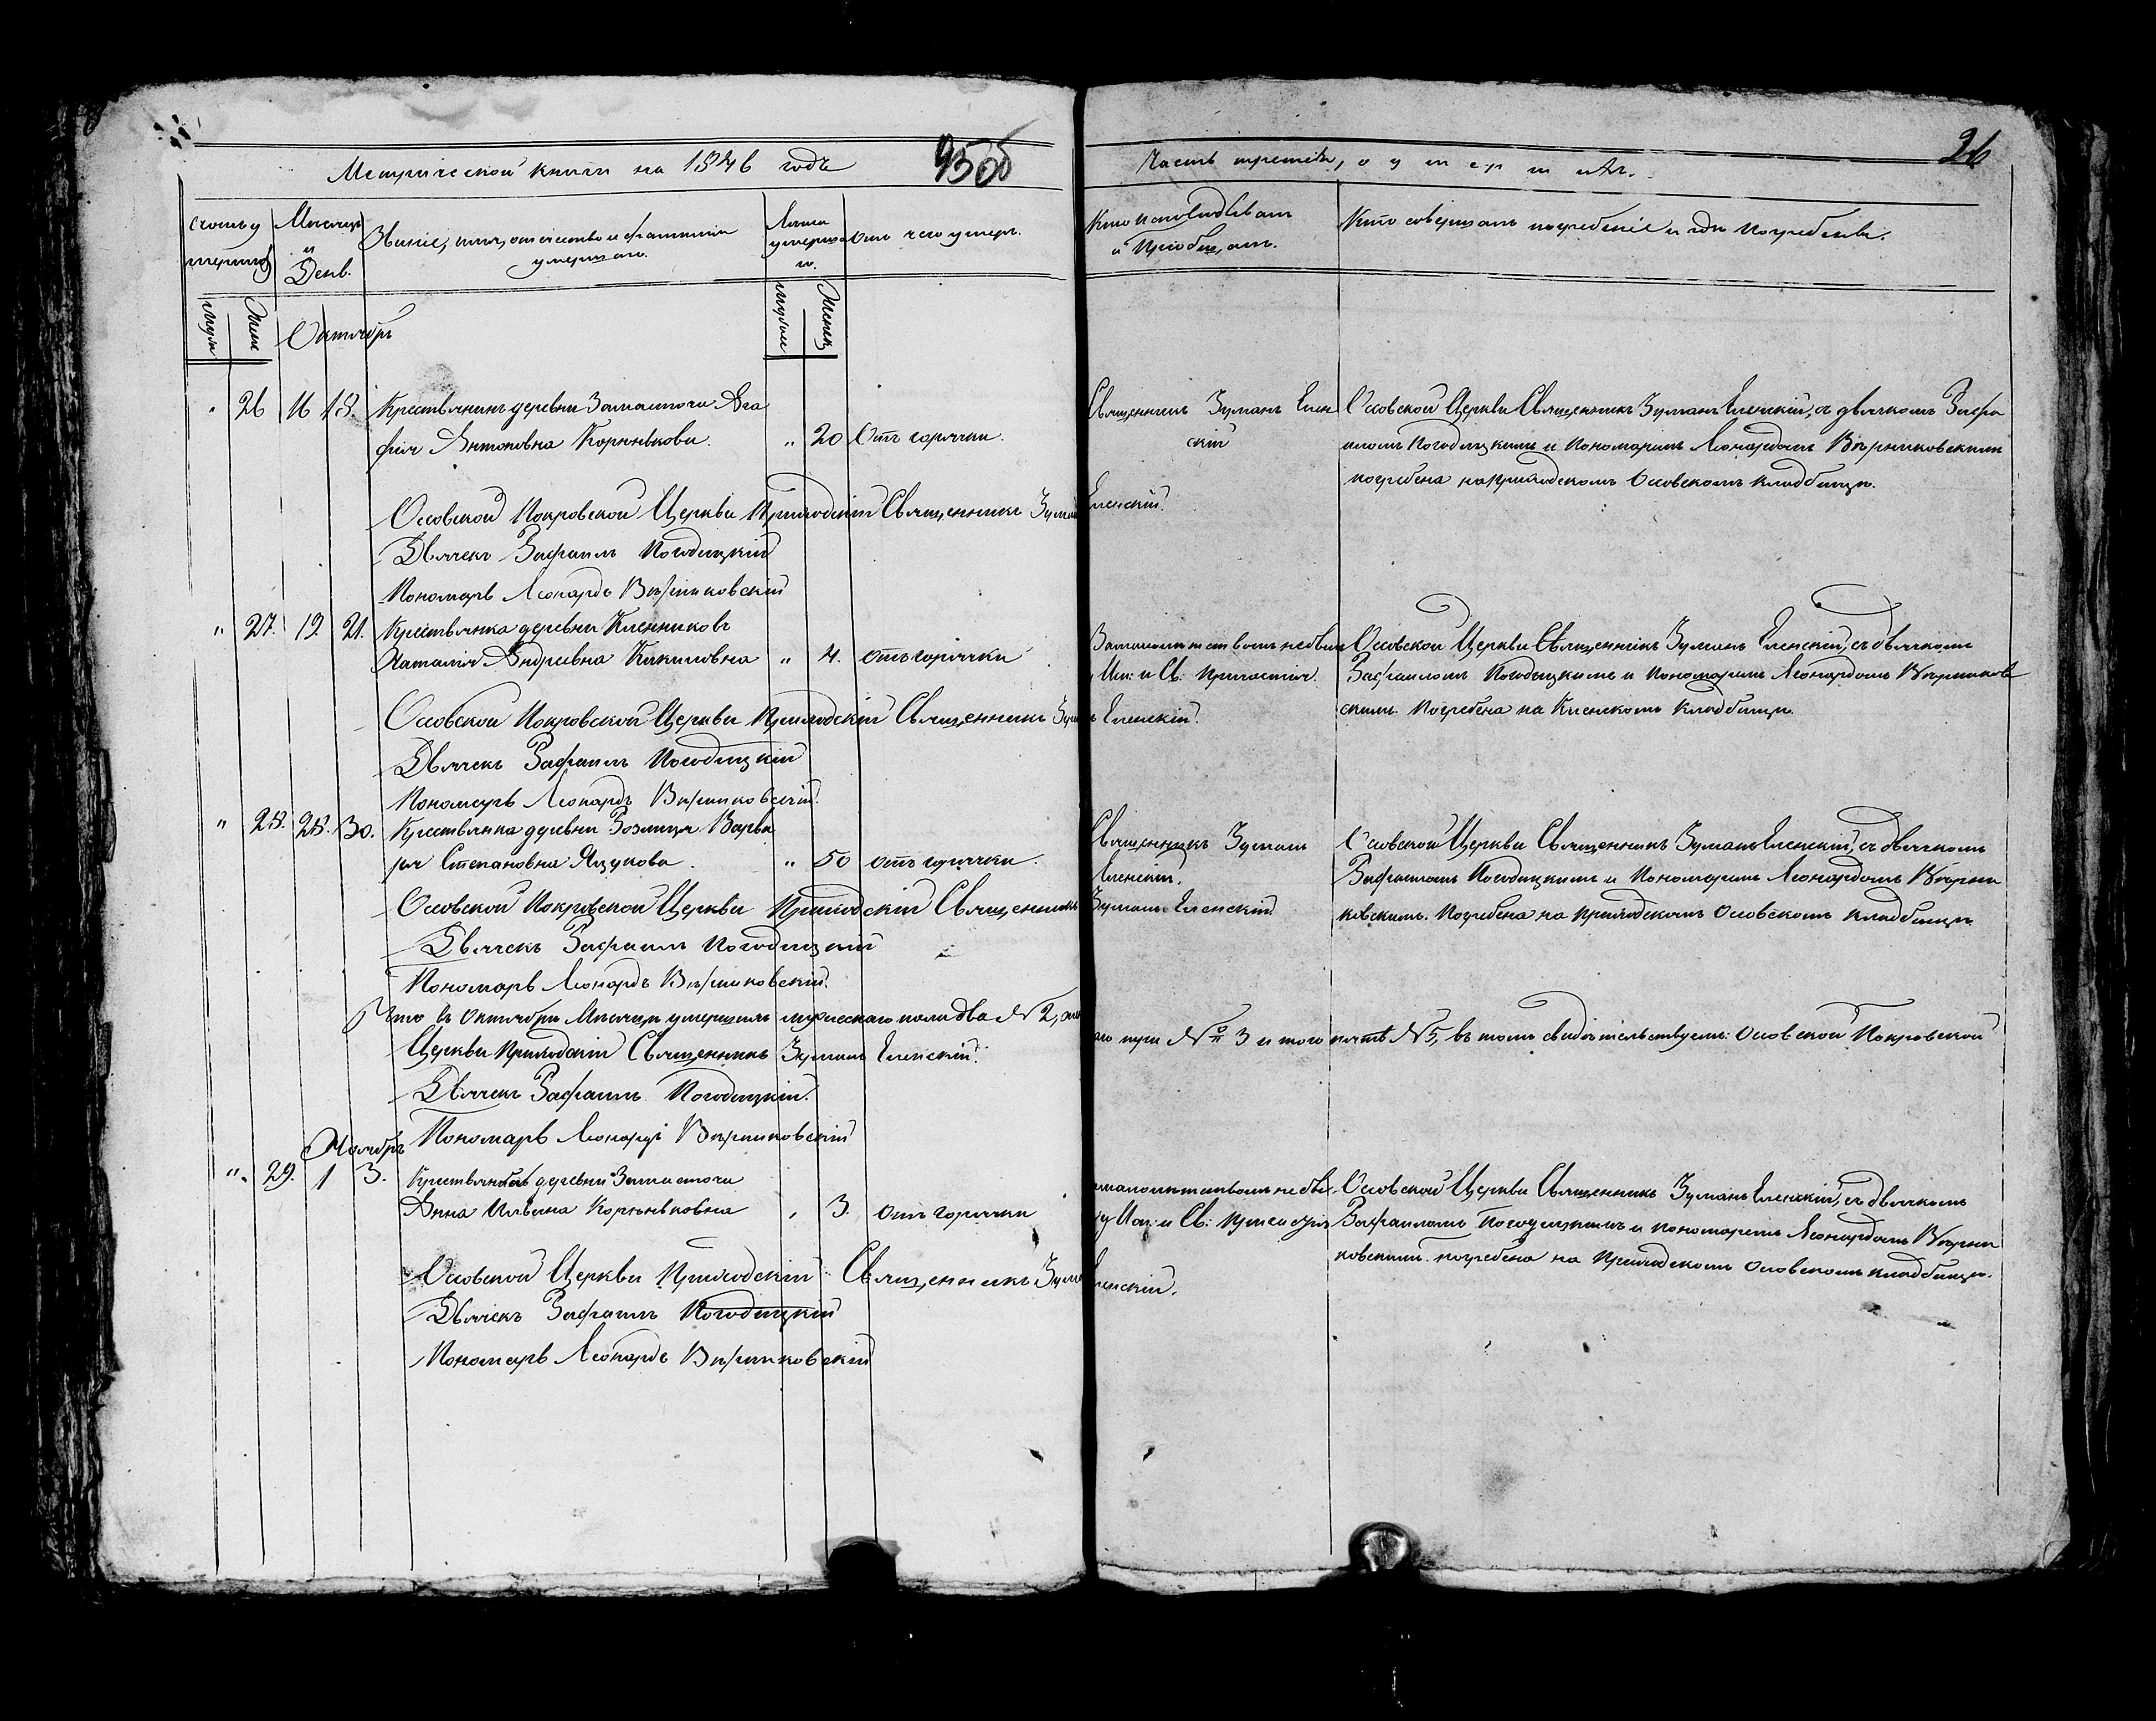 Метрической книги на 1846 годъ
Часть третія, о умершихъ.
26
Счетъ умершихъ
Мѣсяцъ и День.
Званіе, имя, отечество и фамилія умершаго.
Лѣта умершаго.
Отъ чего умеръ.
Кто исповѣдывалъ и пріобщалъ.
Кто совершалъ погребеніе и гдѣ погребены.
Муж
Жен
Октябрь
Мужеск
Женск
" 26 16 18. Крестьянинъ деревни Замосточи Ага
фія Антоновна Корнѣкова. " 20 Отъ горячки.
Священникъ Зуманъ Елен
скій
Осовской Церкви Священникъ Зуманъ Еленскій, съ дьячкомъ Рафа
иломъ Погодицкимъ и Пономаремъ Леонардомъ Вѣрниковскимъ
погребена на приходскомъ Осовскомъ кладбищѣ.
Осовской Покровской Церкви Приходскій Священникъ Зуманъ Еленскій.
Дьячекъ Рафаилъ Погодицкій
Пономарь Леонардъ Вѣрниковскій
" 27. 19. 21. Крестьянка деревни Кленниковъ
Наталія Андреевна " 4. отъ горячки
За малолѣтствомъ не
Исп: и Св: Причастія.
Осовской Церкви Священникъ Зуманъ Еленскій, съ дьячкомъ
Рафаиломъ Погодицкимъ и Пономаремъ Леонардомъ Вѣрников
скимъ. Погребена на кладбищѣ.
Осовской Покровской Церкви Приходскій Священникъ Зуманъ Еленскій.
Дьячекъ Рафаилъ Погодицкій
Пономарь Леонардъ Вѣрниковскій.
" 28. 28. 30. Крестьянка деревни Варва
ра Степановна Яцукова. " 50 отъ горячки.
Священникъ Зуманъ
Еленскій.
Осовской Церкви Священникъ Зуманъ Еленскій, съ дьячкомъ
Рафаиломъ Погодицкимъ и Пономаремъ Леонардомъ Вѣрни
ковскимъ. Погребена на приходскомъ Осовскомъ кладбищѣ
Осовской Покровской Церкви Приходскій Священникъ Зуманъ Еленскій
Дьячекъ Рафаилъ Погодицкій
Пономарь Леонардъ Вѣрниковскій.
Что въ Октябрѣ Мѣсяцѣ умершихъ мужескаго пола два № 2, три № 3 и того пять № 5, въ томъ свидѣтельствуемъ: Осовской Покровской
Церкви Приходскій Священникъ Зуманъ Еленскій.
Дьячекъ Рафаилъ Погодицкій.
Пономарь Леонардъ Вѣрниковскій
Ноябрь
" 29. 1 3. деревни Замосточи
Анна Ильина Корнѣковна " 3. отъ горячки
малолѣтствомъ не
Исп: и Св: Причастія
Осовской Церкви Священникъ Зуманъ Еленскій, съ дьячкомъ
Рафаиломъ Погодицкимъ и пономаремъ Леонардомъ Вѣрни
ковскимъ. погребена на Приходскомъ Осовскомъ кладбищѣ.
Осовской Церкви Приходскій Священникъ Зуманъ Еленскій.
Дьячекъ Рафаилъ Погодицкій
Пономарь Леонардъ Вѣрниковскій